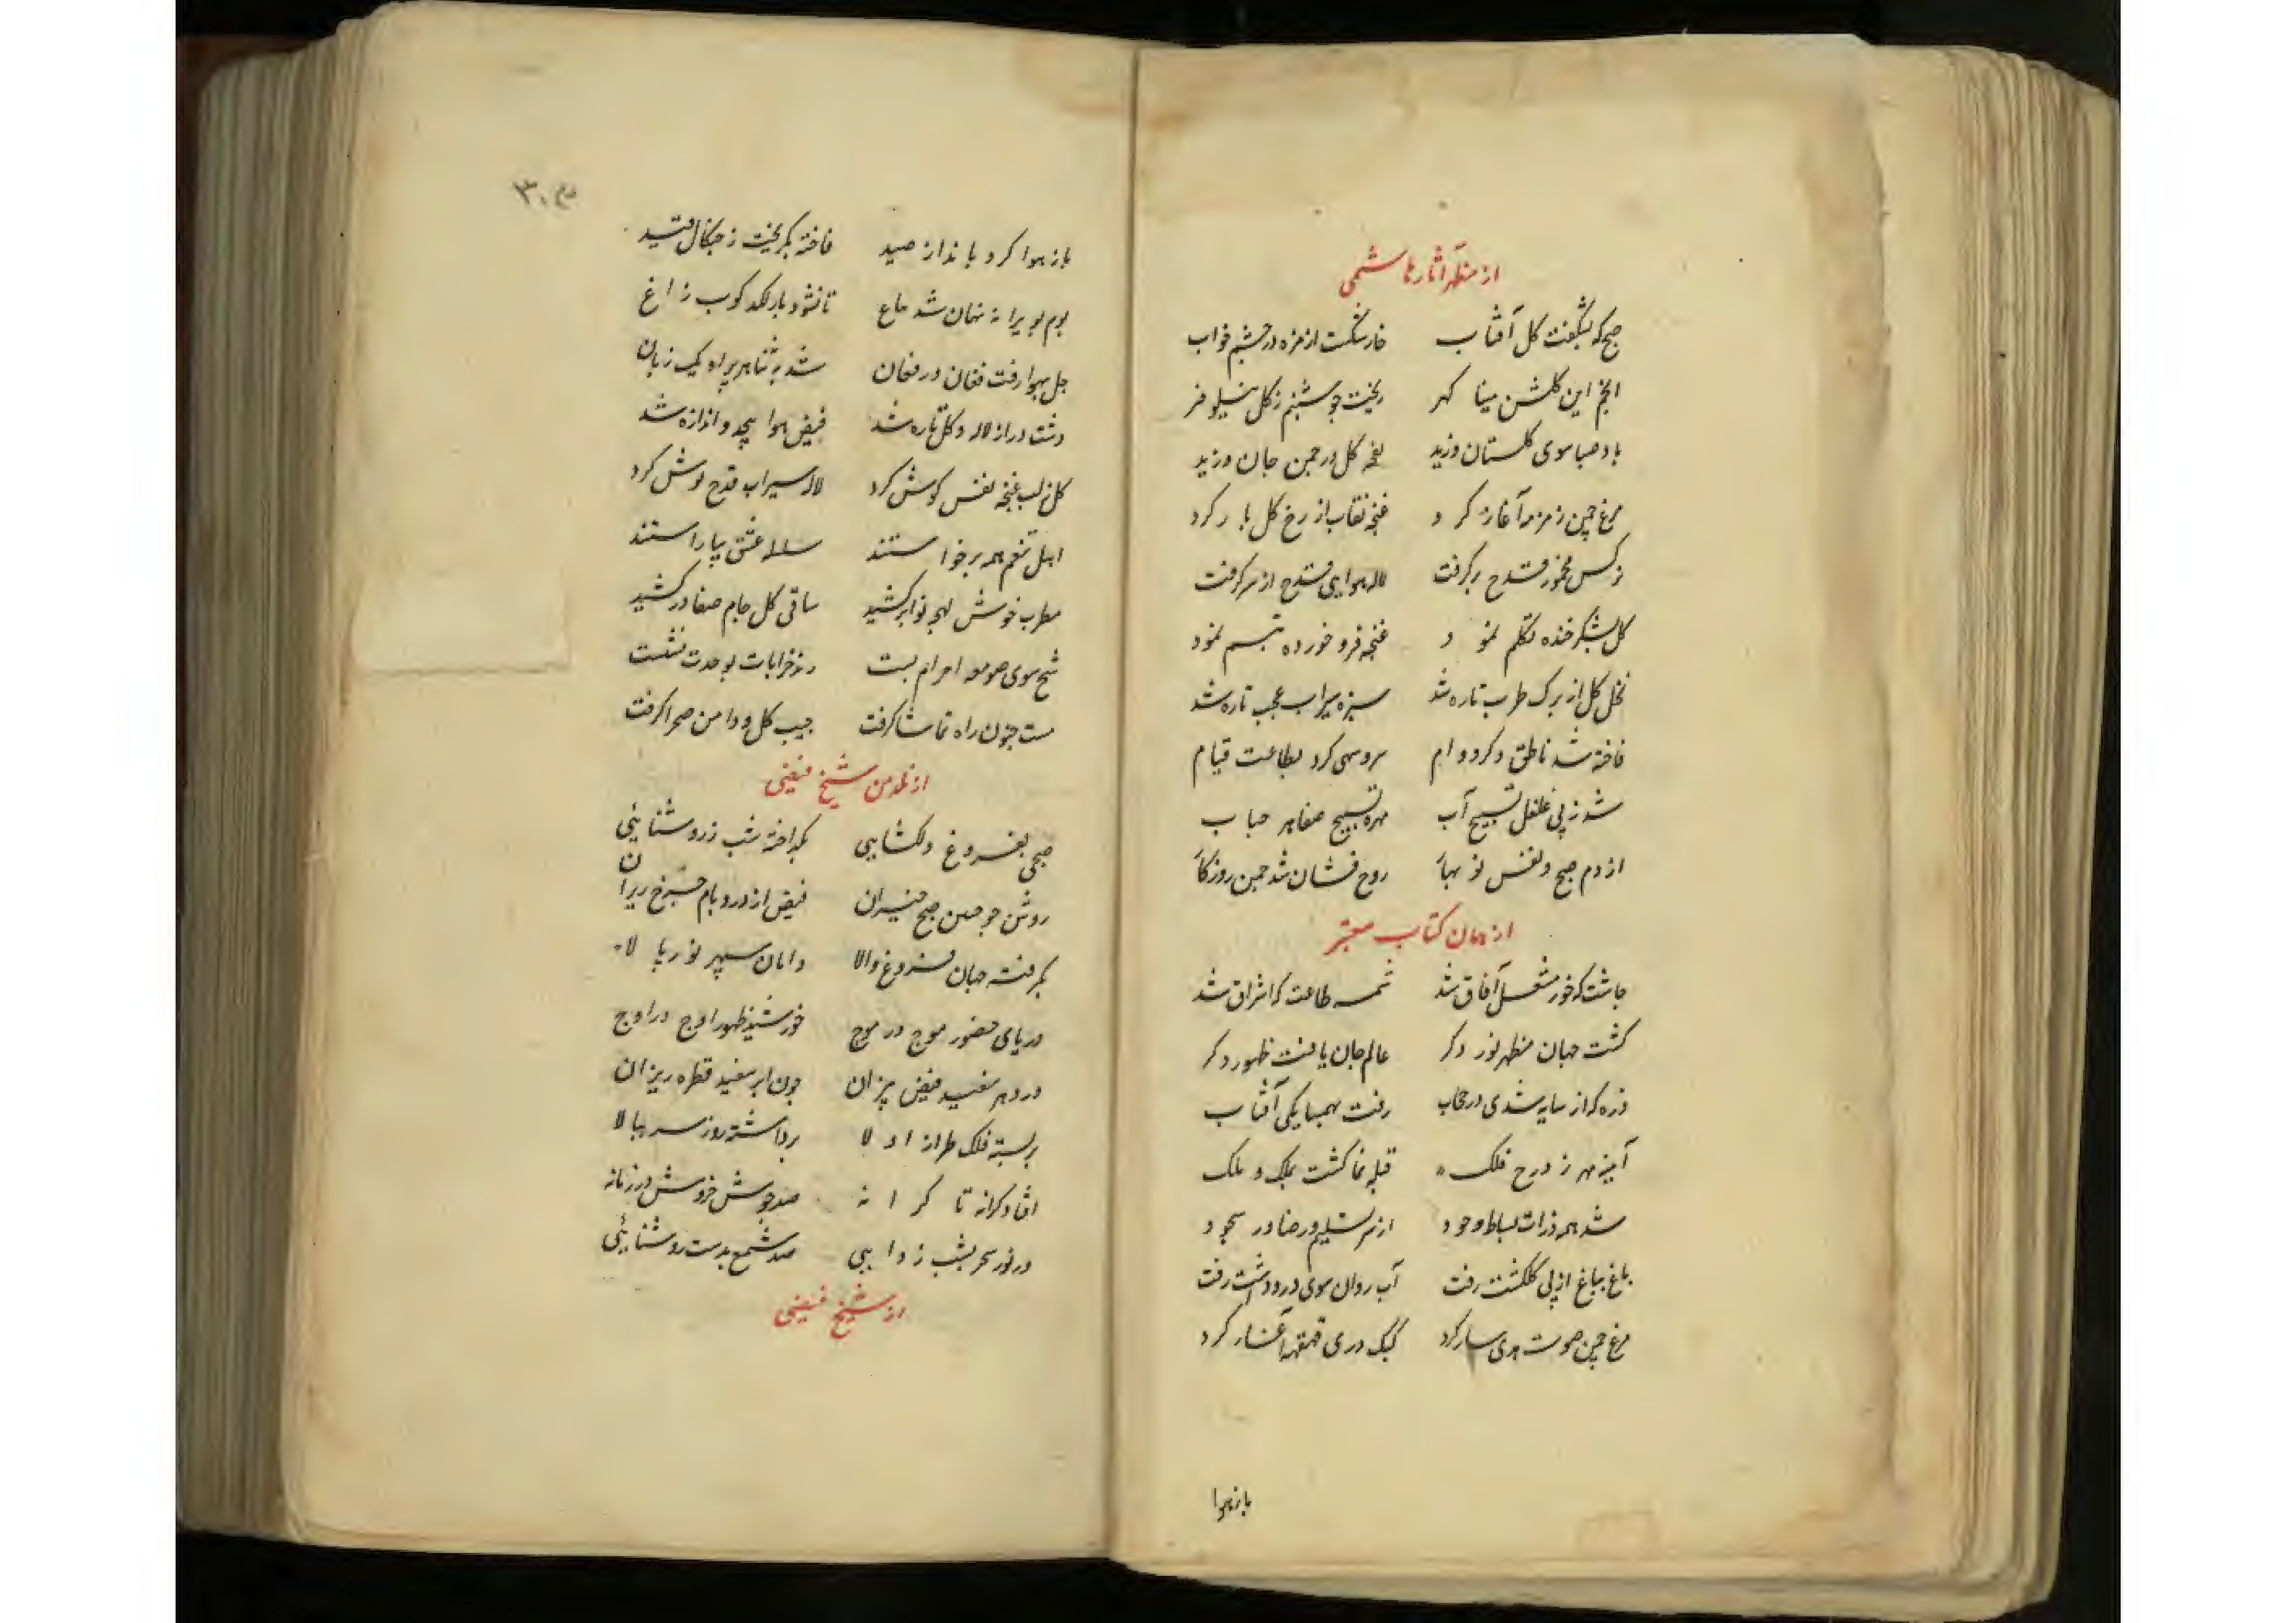 از مظهر آثار هاشمی
صبح که بشکفت کل آفتاب خار شکست از مژه در چشم خواب
انجم این کلشن مینا کهر ریخت چو شبنم ز کل نیلوفر
باد صبا سوی کلستان وزید نفحه کل در چمن جان وزید
مرغ چمن زمزمه آغاز کرد غنچه نقاب از رخ کل باز کرد
نرکس مخمور قدح برکرفت لاله هوای قدح از سر کرفت
کل بشکر خنده تکلم نمود غنچه فرو خورده تبسم نمود
نخل کل از برک طرب تازه شد سبزه سیراب عجب تازه شد
فاخته شد ناطق و کرد دوام سرو سهی کرد بطاعت قیام
شد ز پی غلغل تسبیح آب مهره تسبیح صفا هر حباب
از دم صبح و نفس نو بهار روح فشان شد چمن روزکار
از همان کتاب معتبر
چاشت که خور مشعل آفاق شد شمسه طاعت که اشراق شد
کشت جهان مظهر نور دکر عالم جان یافت ظهور دکر
ذره که از سایه شدی در حجاب رفت بهمسایکی آفتاب
آینه مهر ز درج فلک قبله نما کشت بملک و ملک
شد همه ذرات بساط وجود از سر تسلیم و رضا در سجود
باغ بباغ از پی کلکشت رفت آب روان سوی در و دشت رفت
مرغ چمن صوت هدی ساز کرد کبک دری قهقهه آغاز کرد
باز هوا
۳۰۳
باز هوا کرد بانداز صید فاخته بکریخت ز چنکال قید
بوم بویرانه نهان شد بباغ تا نشود بار لکد کوب زاغ
جل بهوا رفت فغان در فغان شد به ثنا هر پر او یک زبان
دشت و در از لاله و کل تازه شد فیض هوا بیحد و اندازه شد
کل ز لب غنچه نفس کوش کرد لاله سیراب قدح نوش کرد
اهل تنعم همه برخواستند سلسله عشق بیاراستند
مطرب خوش لهجه نوا برکشید ساقی کل جام صفا درکشید
شیخ سوی صومعه احرام بست رند خرابات بوحدت نشست
مست جنون راه تماشا کرفت جیب کل و دامن صحرا کرفت
از نلدمن شیخ فیضی
صبحی بفروغ دلکشایی بکداخته شب ز روشنائی
روشن چو جبین صبح خیزان فیض از در و بام چرخ ریزان
بکرفته جهان فروغ والا دامان سپهر نور بالا
دریای حضور موج در موج خورشید ظهور اوج در اوج
در دهر سفیده فیض بیزان چون ابر سفید قطره ریزان
بر بسته فلک طراز اولا برداشته روز سر ببالا
افتاد کرانه تا کرانه صد جوش خروش در زمانه
در نور سحر بشب زدایی صد شمع بدست روشنائی
از شیخ فیضی